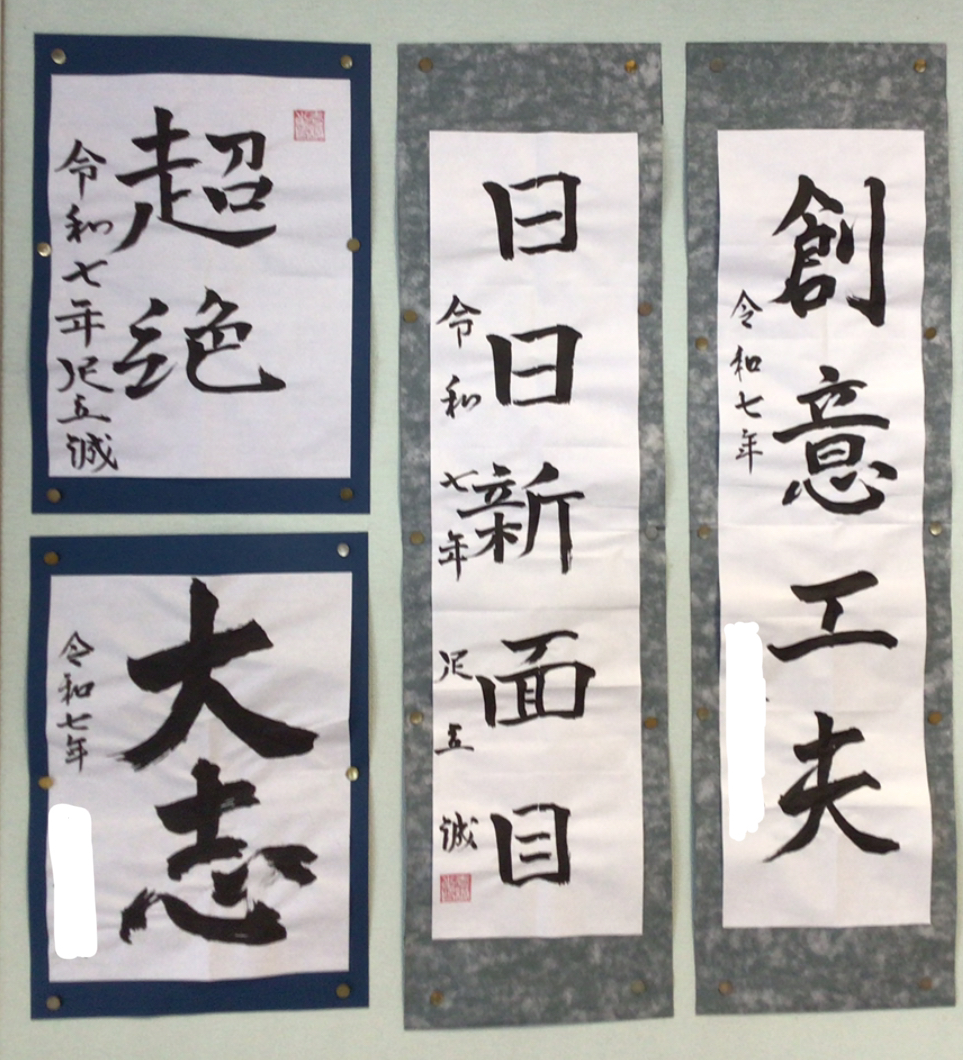 創意工夫
令和七年
日日新面目
令和七年 足立誠
超絶
令和七年足立誠
大志
令和七年